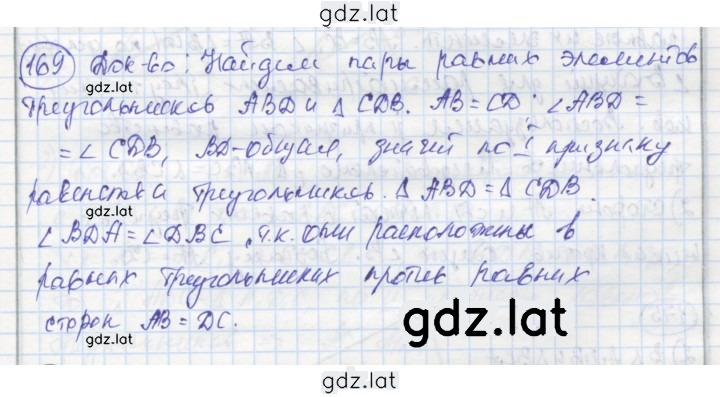 gdz.lat
169 Док-во: Найдем пары равных элементов
gdz.lat
треугольников ABD и △ CDB. AB = CD; ∠ABD =
= ∠ CDB, BD - общая, значит по I признаку
равенства треугольников. △ ABD = △ CDB.
gdz.lat
∠ BDA = ∠DBC, т.к. они расположены в
равных треугольниках против равных
сторон AB = DC.
gdz.lat
gdz.lat
gdz.lat